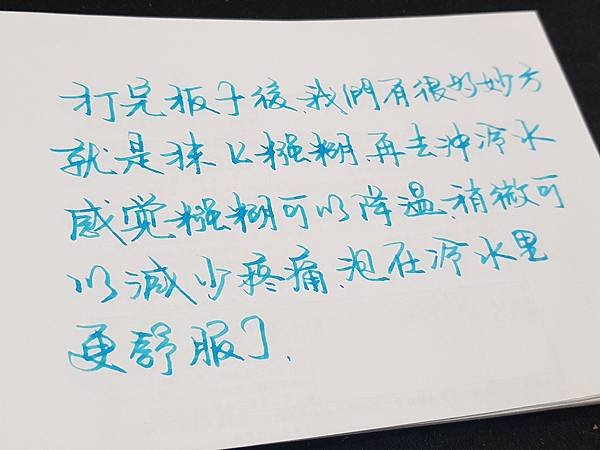 打完板子後、我們有很好妙方
就是抹上糨糊、再去沖冷水
感觉糨糊可以降温、稍微可
以減少疼痛、泡在冷水里
更舒服了.